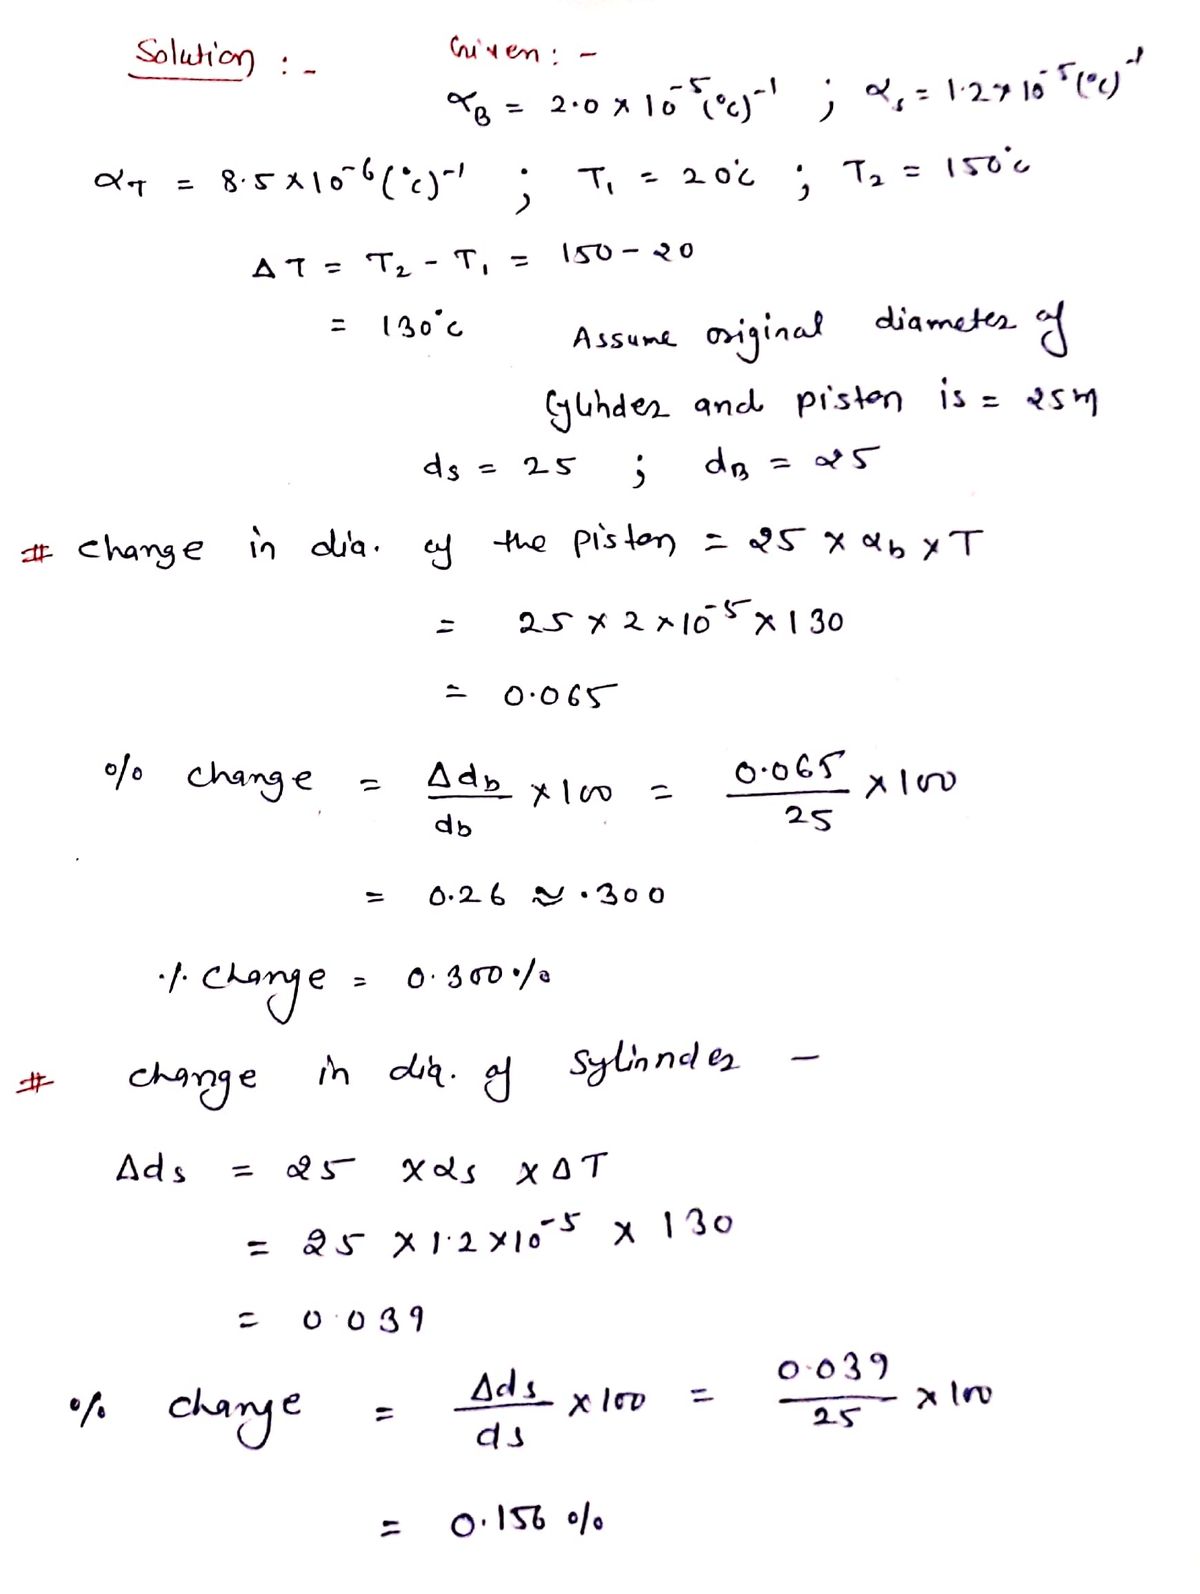 Solution :-
Given: -
α_B = 2.0 × 10^-5 (°c)^-1 ; α_s = 1.2 × 10^-5 (°c)^-1
α_T = 8.5 × 10^-6 (°c)^-1 ; T_1 = 20°c ; T_2 = 150°c
ΔT = T_2 - T_1 = 150 - 20
= 130°c
Assume original diameter of
Cylinder and piston is = 25m
ds = 25 ; d_B = 25
# change in dia. of the piston = 25 × α_b × T
= 25 × 2 × 10^-5 × 130
= 0.065
% change = Δd_b/d_b × 100 = 0.065/25 × 100
= 0.26 ≈ .300
% change = 0.300 %
# change in dia. of Sylinnder -
Δds = 25 × αs × ΔT
= 25 × 1.2 × 10^-5 × 130
= 0.039
% change = Δds/ds × 100 = 0.039/25 × 100
= 0.156 %